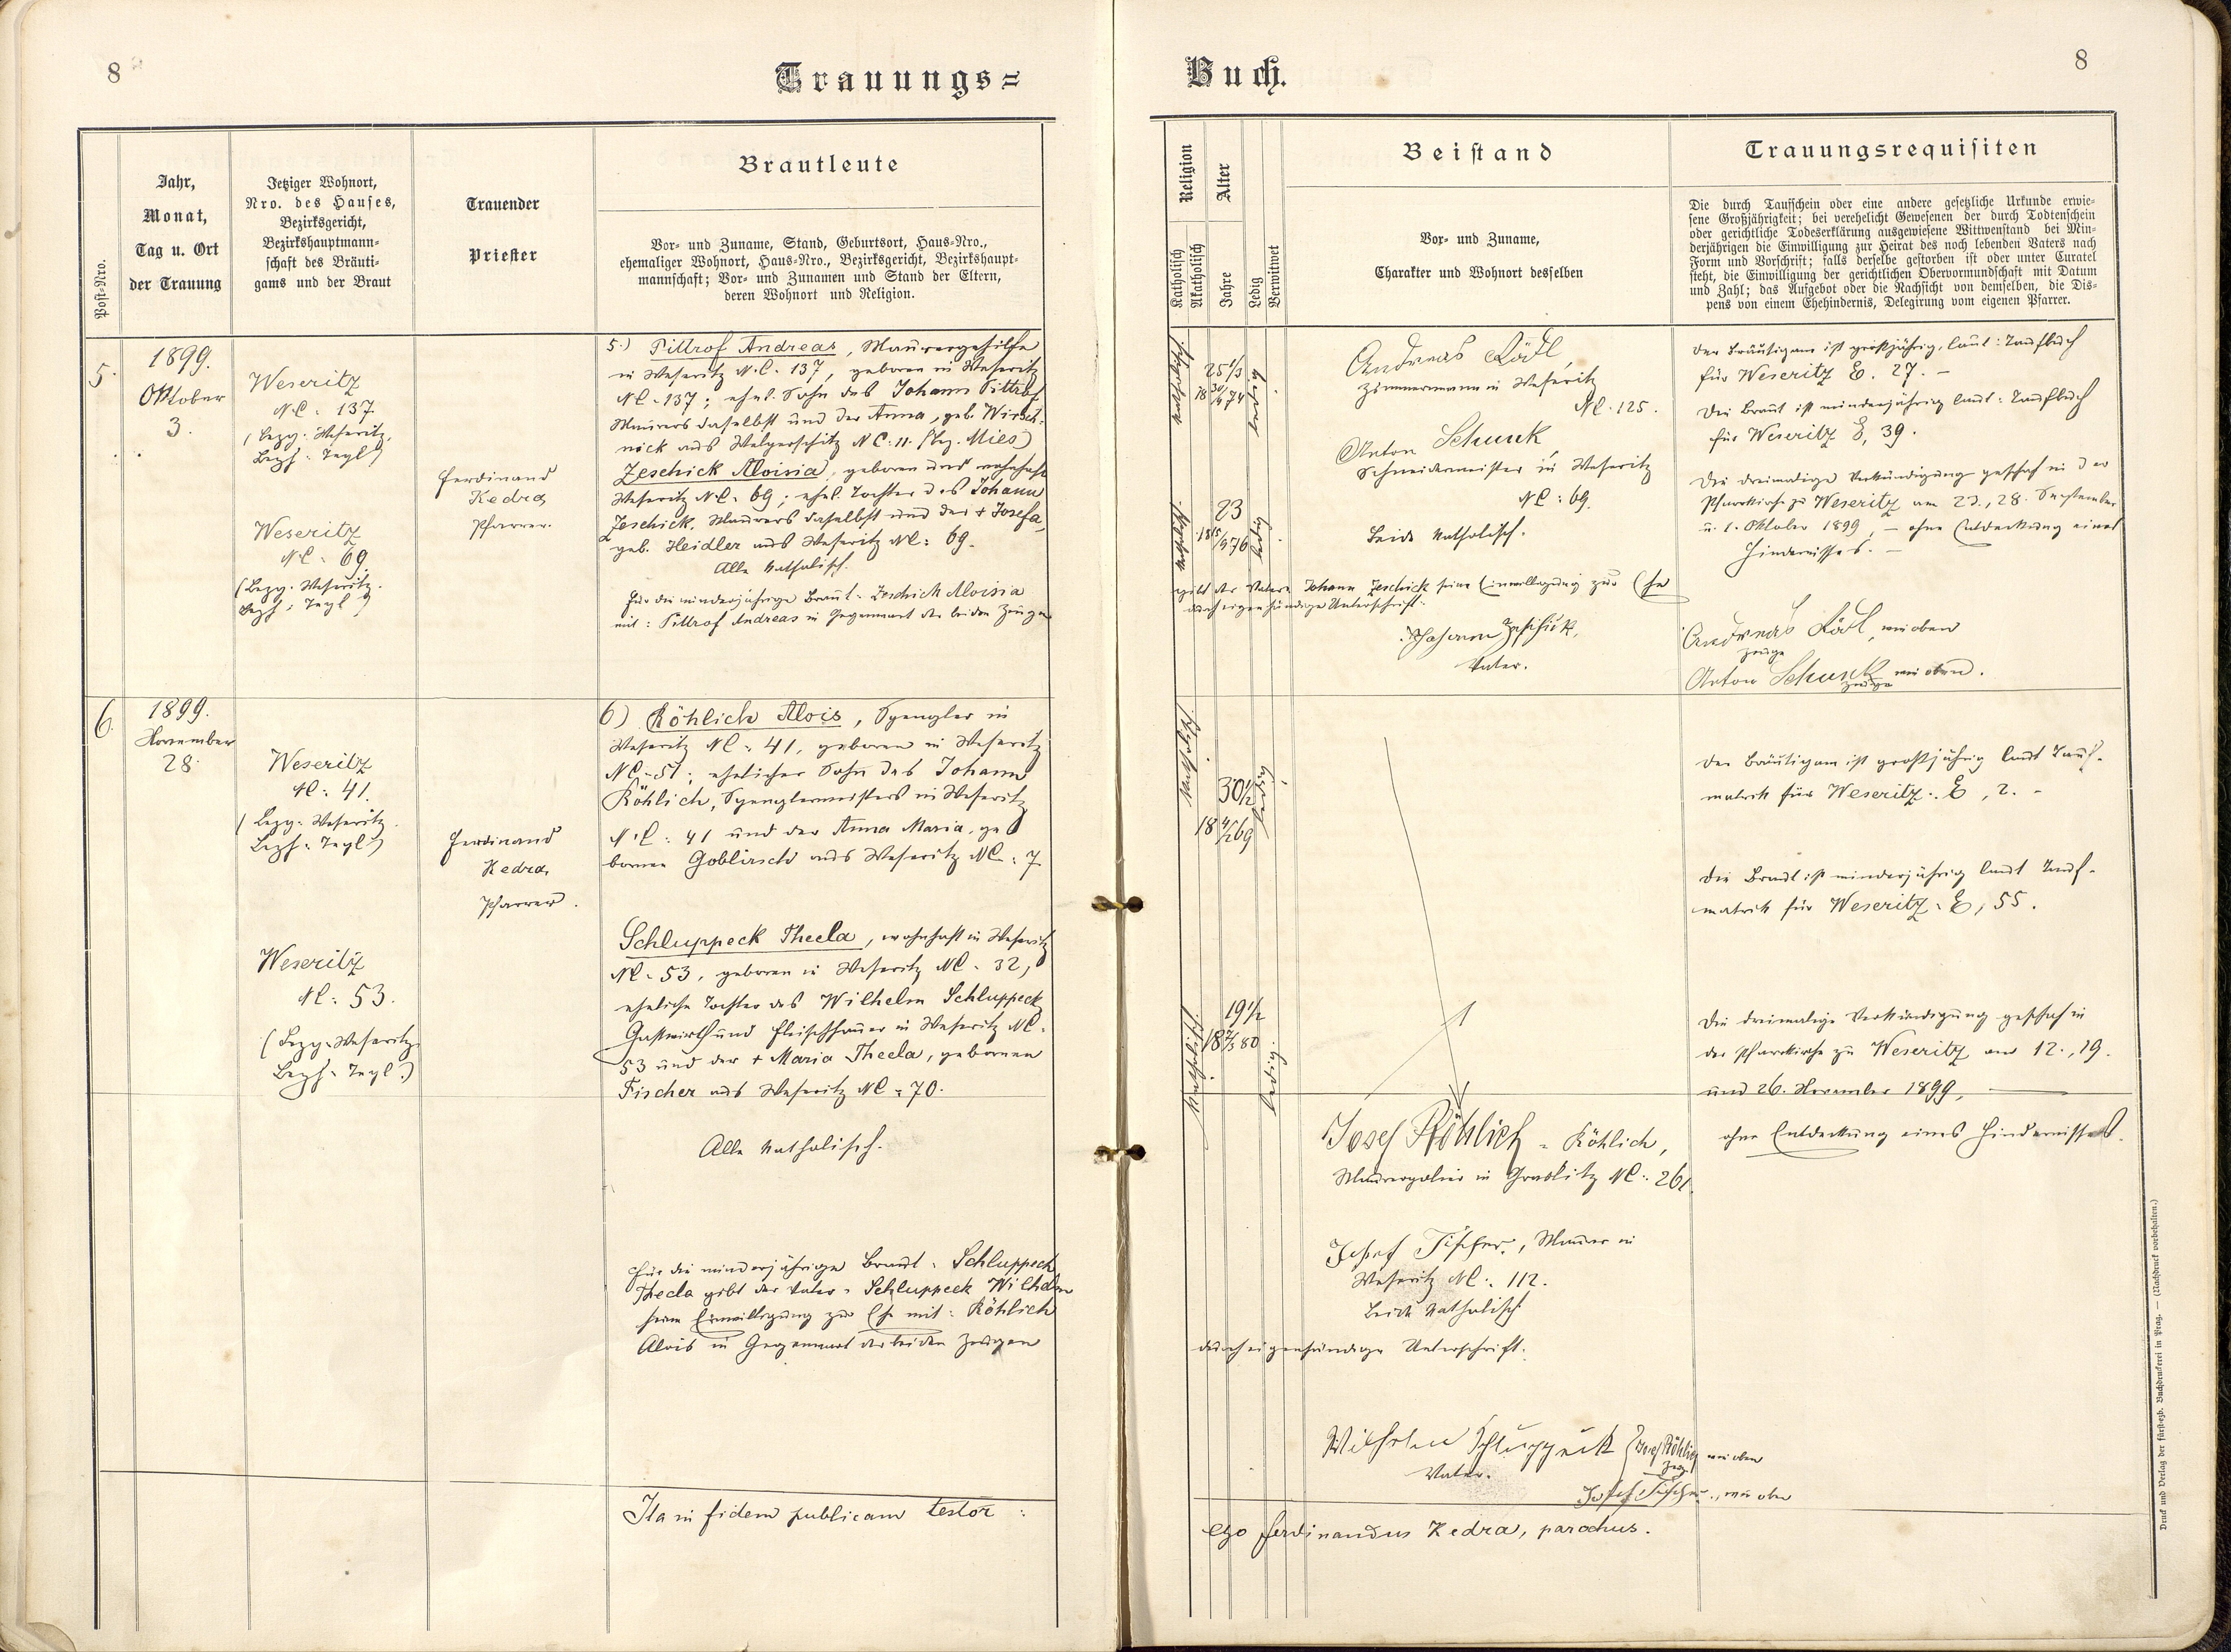 8
Trauungs=
Jahr,
Monat,
Tag u. Ort
der Trauung
Post=Nro.
Jetziger Wohnort,
Nro. des Hauses,
Bezirksgericht,
Bezirkshauptmann=
schaft des Bräuti=
gams und der Braut
Trauender
Priester
Brautleute
Vor= und Zuname, Stand, Geburtsort, Haus=Nro.,
ehemaliger Wohnort, Haus=Nro., Bezirksgericht, Bezirkshaupt=
mannschaft; Vor= und Zunamen und Stand der Eltern,
deren Wohnort und Religion.
5.
1899.
Oktober
3.
Weseritz
NC: 137.
(Bezg: Weseritz,
Bezh: Tepl)
Weseritz
NC: 69.
(Bezg: Weseritz.
Bezh: Tepl)
Ferdinand
Kedra,
Pfarrer.
5.) Pittrof Andreas, Maurergehilfe
in Weseritz N.C. 137, geboren in Weseritz
NC. 137; ehel. Sohn des Johann Pittrof,
Maurers daselbst und der Anna, geb. Wirsch-
nick aus Wolgerschitz NC: 11. (Bez. Mies)
Zeschick Aloisia, geboren und wohnhaft
Weseritz NC: 69; ehel. Tochter des Johann
Zeschick, Maurers daselbst und der + Josefa,
geb. Heidler aus Weseritz NC: 69.
Alle katholisch.
Für die minderjährige Braut: Zeschick Aloisia
mit: Pittrof Andreas in Gegenwart der beiden Zeugen
6.
1899.
November
28.
Weseritz
NC: 41.
(Bezg: Weseritz.
Bezh: Tepl)
Weseritz
NC: 53.
(Bezg: Weseritz,
Bezh: Tepl.)
Ferdinand
Kedra,
Pfarrer.
6) Röhlich Alois, Spengler in
Weseritz NC: 41, geboren in Weseritz
NC: 51; ehelicher Sohn des Johann
Röhlich, Spenglermeisters in Weseritz
NC: 41 und der Anna Maria, ge
bornen Goblirsch aus Weseritz NC: 7.
Schluppeck Thecla, wohnhaft in Weseritz
NC: 53, geboren in Weseritz NC: 32,
eheliche Tochter des Wilhelm Schluppeck
Gastwirth und Fleischhauer in Weseritz NC:
53 und der + Maria Thecla, gebornen
Fischer aus Weseritz NC: 70.
Alle katholisch.
Für die minderjährige Braut: Schluppeck
Thecla gibt der Vater: Schluppeck Wilhelm
seine Einwilligung zur Ehe mit: Röhlich
Alois in Gegenwart der beiden Zeugen
Ita in fidem publicam testor:
Buch.
8
Religion
Katholisch
Akatholisch
Alter
Jahre
Ledig
Verwitwet
Beistand
Vor= und Zuname,
Charakter und Wohnort desselben
Trauungsrequisiten
Die durch Taufschein oder eine andere gesetzliche Urkunde erwie=
sene Großjährigkeit; bei verehelicht Gewesenen der durch Todtenschein
oder gerichtliche Todeserklärung ausgewiesene Wittwenstand bei Min=
derjährigen die Einwilligung zur Heirat des noch lebenden Vaters nach
Form und Vorschrift; falls derselbe gestorben ist oder unter Curatel
steht, die Einwilligung der gerichtlichen Obervormundschaft mit Datum
und Zahl; das Aufgebot oder die Nachsicht von demselben, die Dis=
pens von einem Ehehindernis, Delegirung vom eigenen Pfarrer.
katholisch
ledig
Andreas Rödl,
Zimmermann in Weseritz
NC: 125.
Anton Schunk
Schneidermeister in Weseritz
NC: 69.
Beide katholisch.
katholisch
23
ledig
gibt der Vater: Johann Zeschick seine Einwilligung zur Ehe
durch eigenhändige Unterschrift.
Johann Zeschick,
Vater.
Der Bräutigam ist großjährig, laut: Taufbuch
für Weseritz E. 27. –
Die Braut ist minderjährig laut: Taufbuch
für Weseritz E, 39.
Die dreimalige Verkündigung geschah in der
Pfarrkirche zu Weseritz am 28. September
u. 1. Oktober 1899, – ohne Entdeckung eines
Hindernisses. –
Andreas Rödl, wie oben
Zeuge
Anton Schunk wie oben.
Zeuge
katholisch
30½
ledig
katholisch
19½
ledig.
Josef Röhlich = Röhlich,
Maurerpolier in Graslitz NC: 261.
Josef Fischer, Maurer in
Weseritz NC: 112.
Beide katholisch
durch eigenhändige Unterschrift.
Wilhelm Schluppeck
Vater.
Josef Röhlich wie oben
Zeuge
Josef Fischer, wie oben
Der Bräutigam ist großjährig laut Tauf-
matrik für Weseritz: E, 2. –
Die Braut ist minderjährig laut Tauf-
matrik für Weseritz: E, 55.
Die dreimalige Verkündigung geschah in
der Pfarrkirche zu Weseritz am 12., 19.
und 26. November 1899,
ohne Entdeckung eines Hindernisses.
ego Ferdinandus Kedra, parochus.
Druck und Verlag der fürsterzb. Buchdruckerei in Prag. — (Nachdruck vorbehalten.)